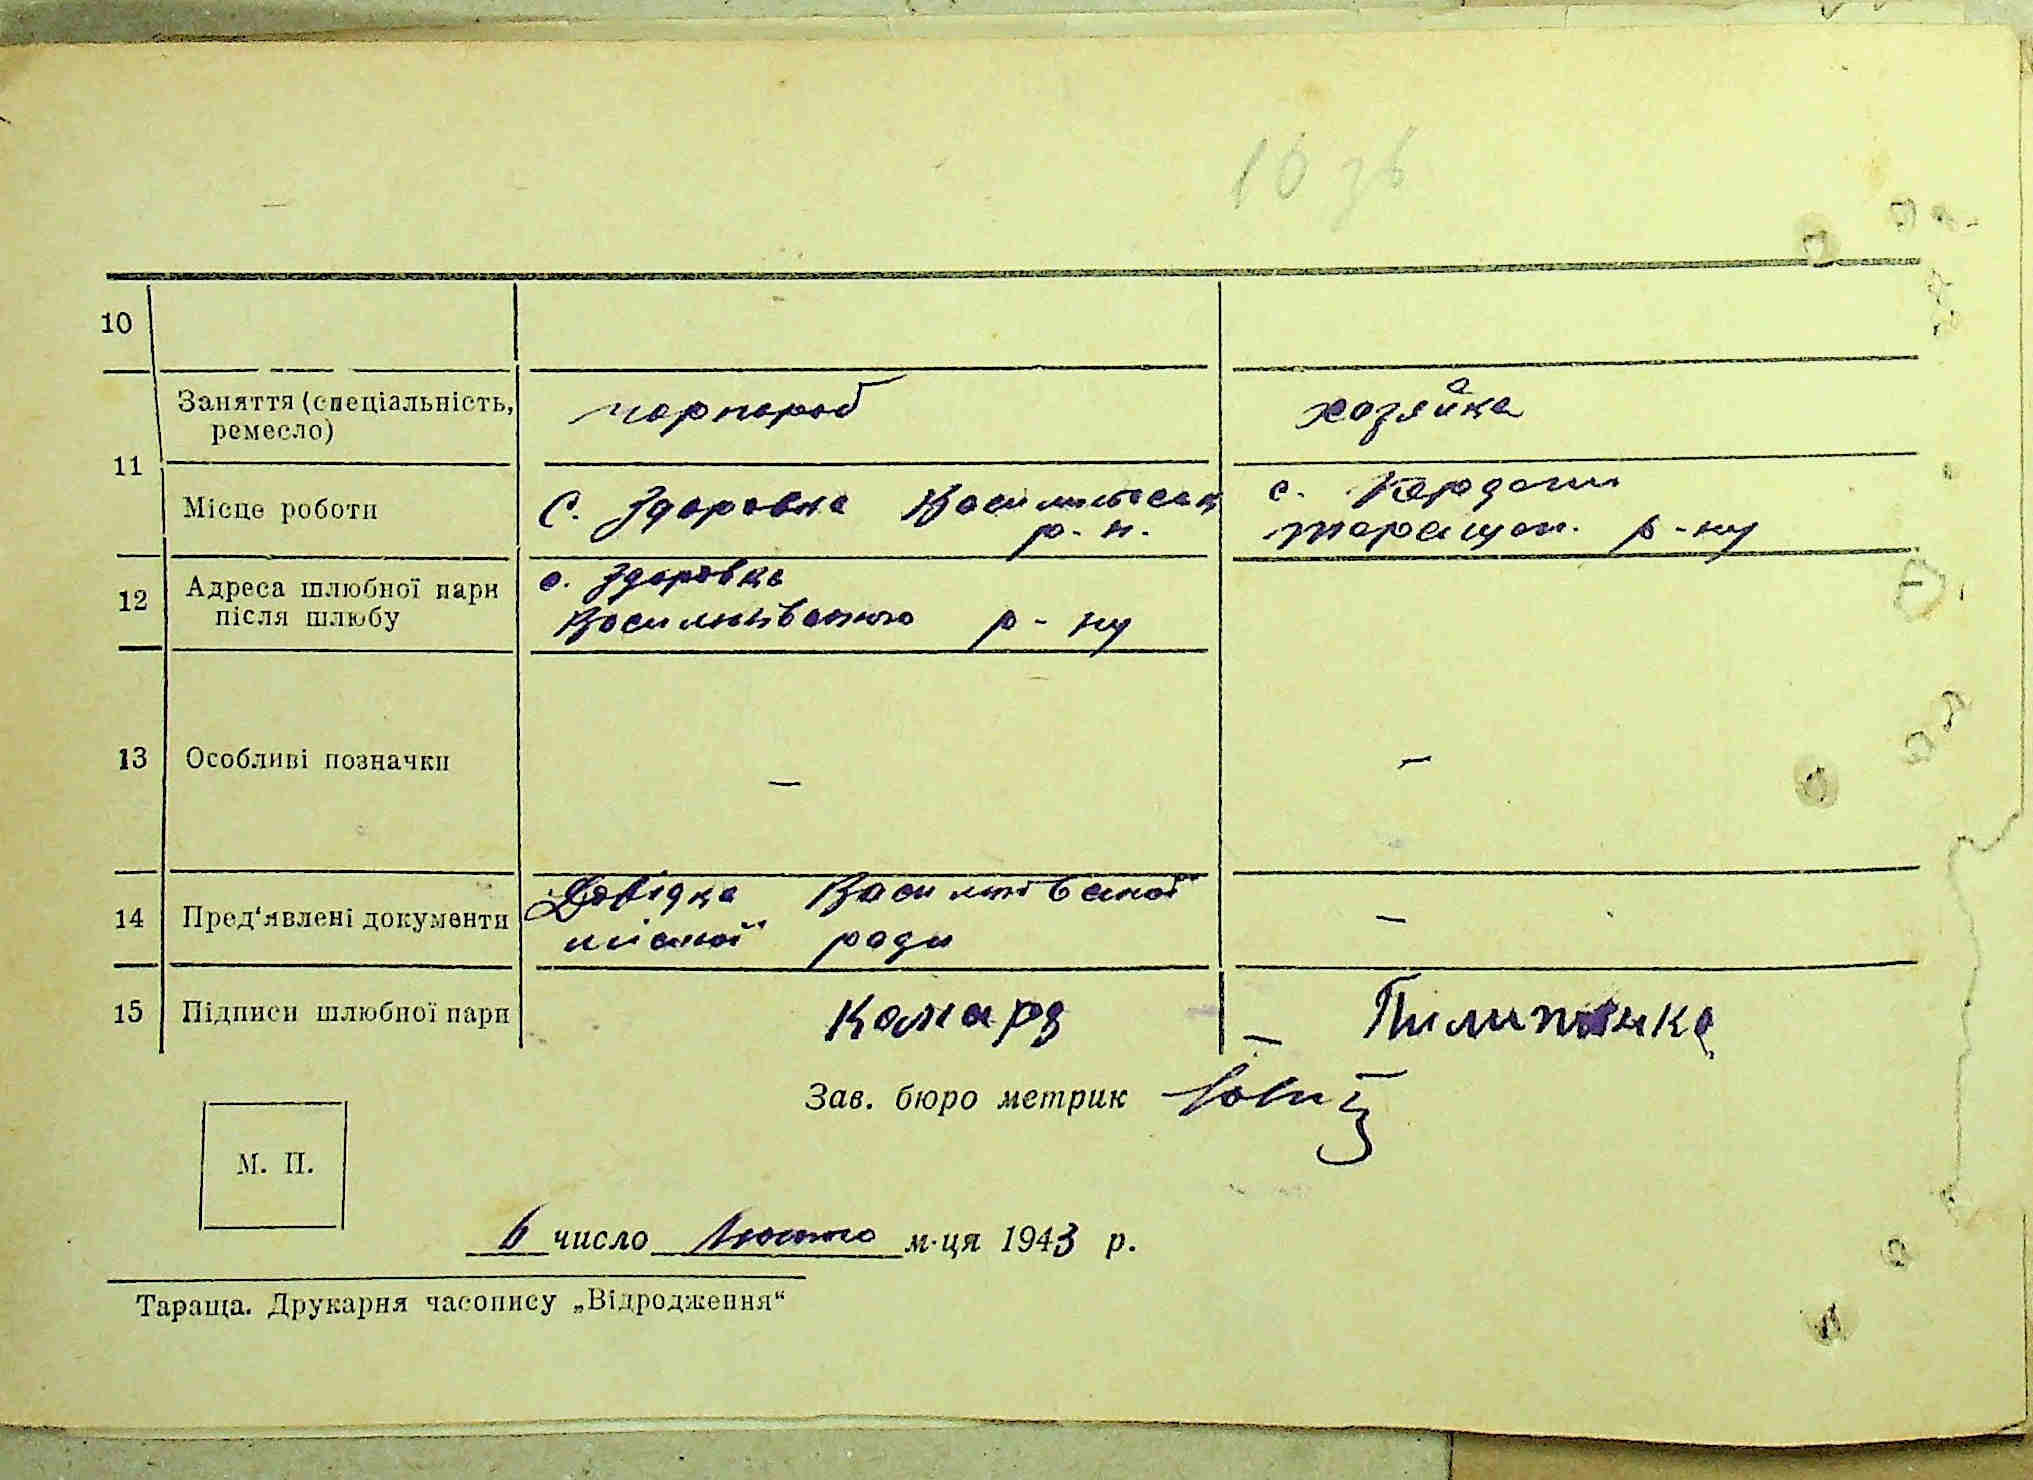 10 зв
10
Заняття (спеціальність,
ремесло)
чорнороб
хозяйка
11
Місце роботи
С. Здоровка Васильківськ
р-н.
с. Кердани
Таращан. р-ну
12
Адреса шлюбної пари
після шлюбу
с. Здоровка
Васильківського р-ну
13
Особливі позначки
—
—
14
Пред'явлені документи
Довідка Васильківської
міської ради
—
15
Підписи шлюбної пари
Комар
— Пилипенко
Зав. бюро метрик
М. П.
6 число лютого м-ця 1943 р.
Тараща. Друкарня часопису „Відродження“